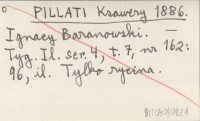 PILLATI Ksawery 1886.
Ignacy Baranowski. —
Tyg. Il. ser. 4, t. 7, nr 162:
96, il. Tylko rycina.